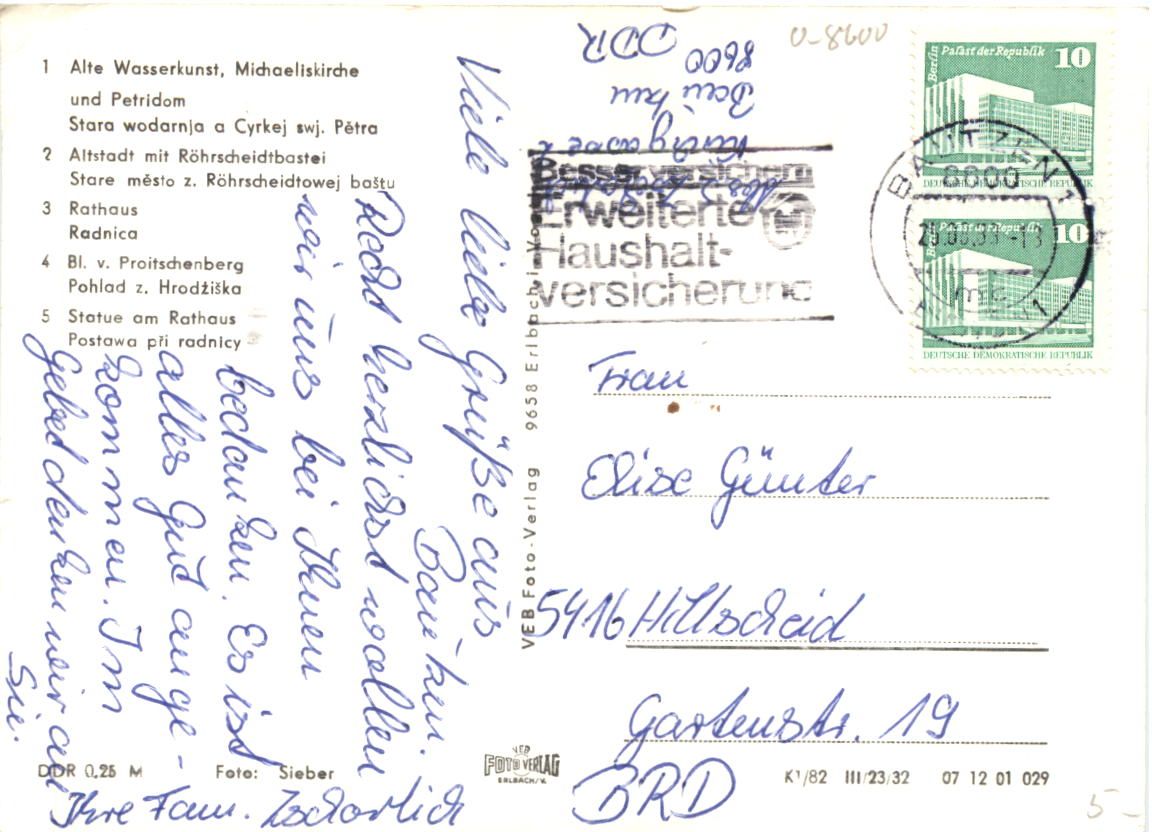 1 Alte Wasserkunst, Michaeliskirche
und Petridom
Stara wodarnja a Cyrkej swj. Pětra
2 Altstadt mit Röhrscheidtbastei
Stare město z. Röhrscheidtowej baštu
3 Rathaus
Radnica
4 Bl. v. Proitschenberg
Pohlad z. Hrodžiška
5 Statue am Rathaus
Postawa při radnicy
Viele liebe Grüße aus
Bautzen.
Recht herzlichst wollen
wir uns bei Ihnen
bedanken. Es ist
alles Gut ange-
kommen. Im
Gebet denken wir an
Sie.
Ihre Fam. Zscharlich
DDR 0,25 M
Foto: Sieber
VEB Foto-Verlag 9658 Erlbach
VEB
FOTO VERLAG
ERLBACH/V.
Bautzen
8600
DDR
0-8600
Besser versichern
Erweiterte
Haushalt-
versicherung
Berlin Palast der Republik 10
DEUTSCHE DEMOKRATISCHE REPUBLIK
BAUTZEN 1
8600
Palast der Republik 10
DEUTSCHE DEMOKRATISCHE REPUBLIK
Frau
Elise Günter
5416 Hillscheid
Gartenstr. 19
BRD
K1/82 III/23/32 07 12 01 029
5-